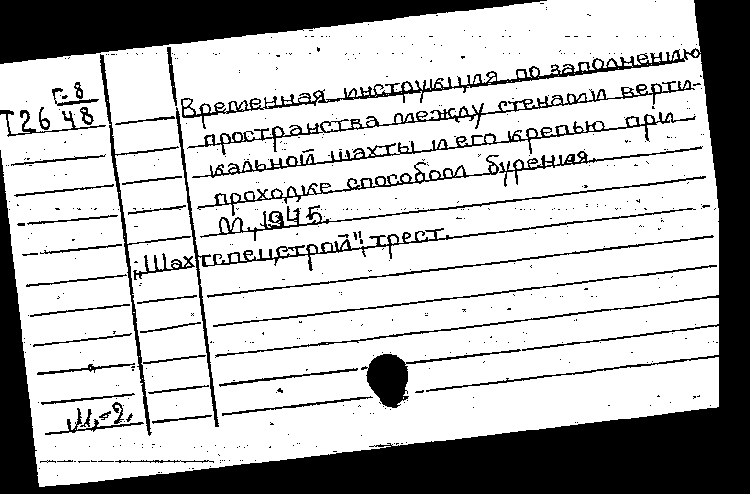 Г-8
Т26 48
Временная инструкция по заполнению
пространства между стенами верти-
кальной шахты и его крепью при
проходке способом бурения.
М., 1945.
„Шахтспецстрой", трест.
М,-2.